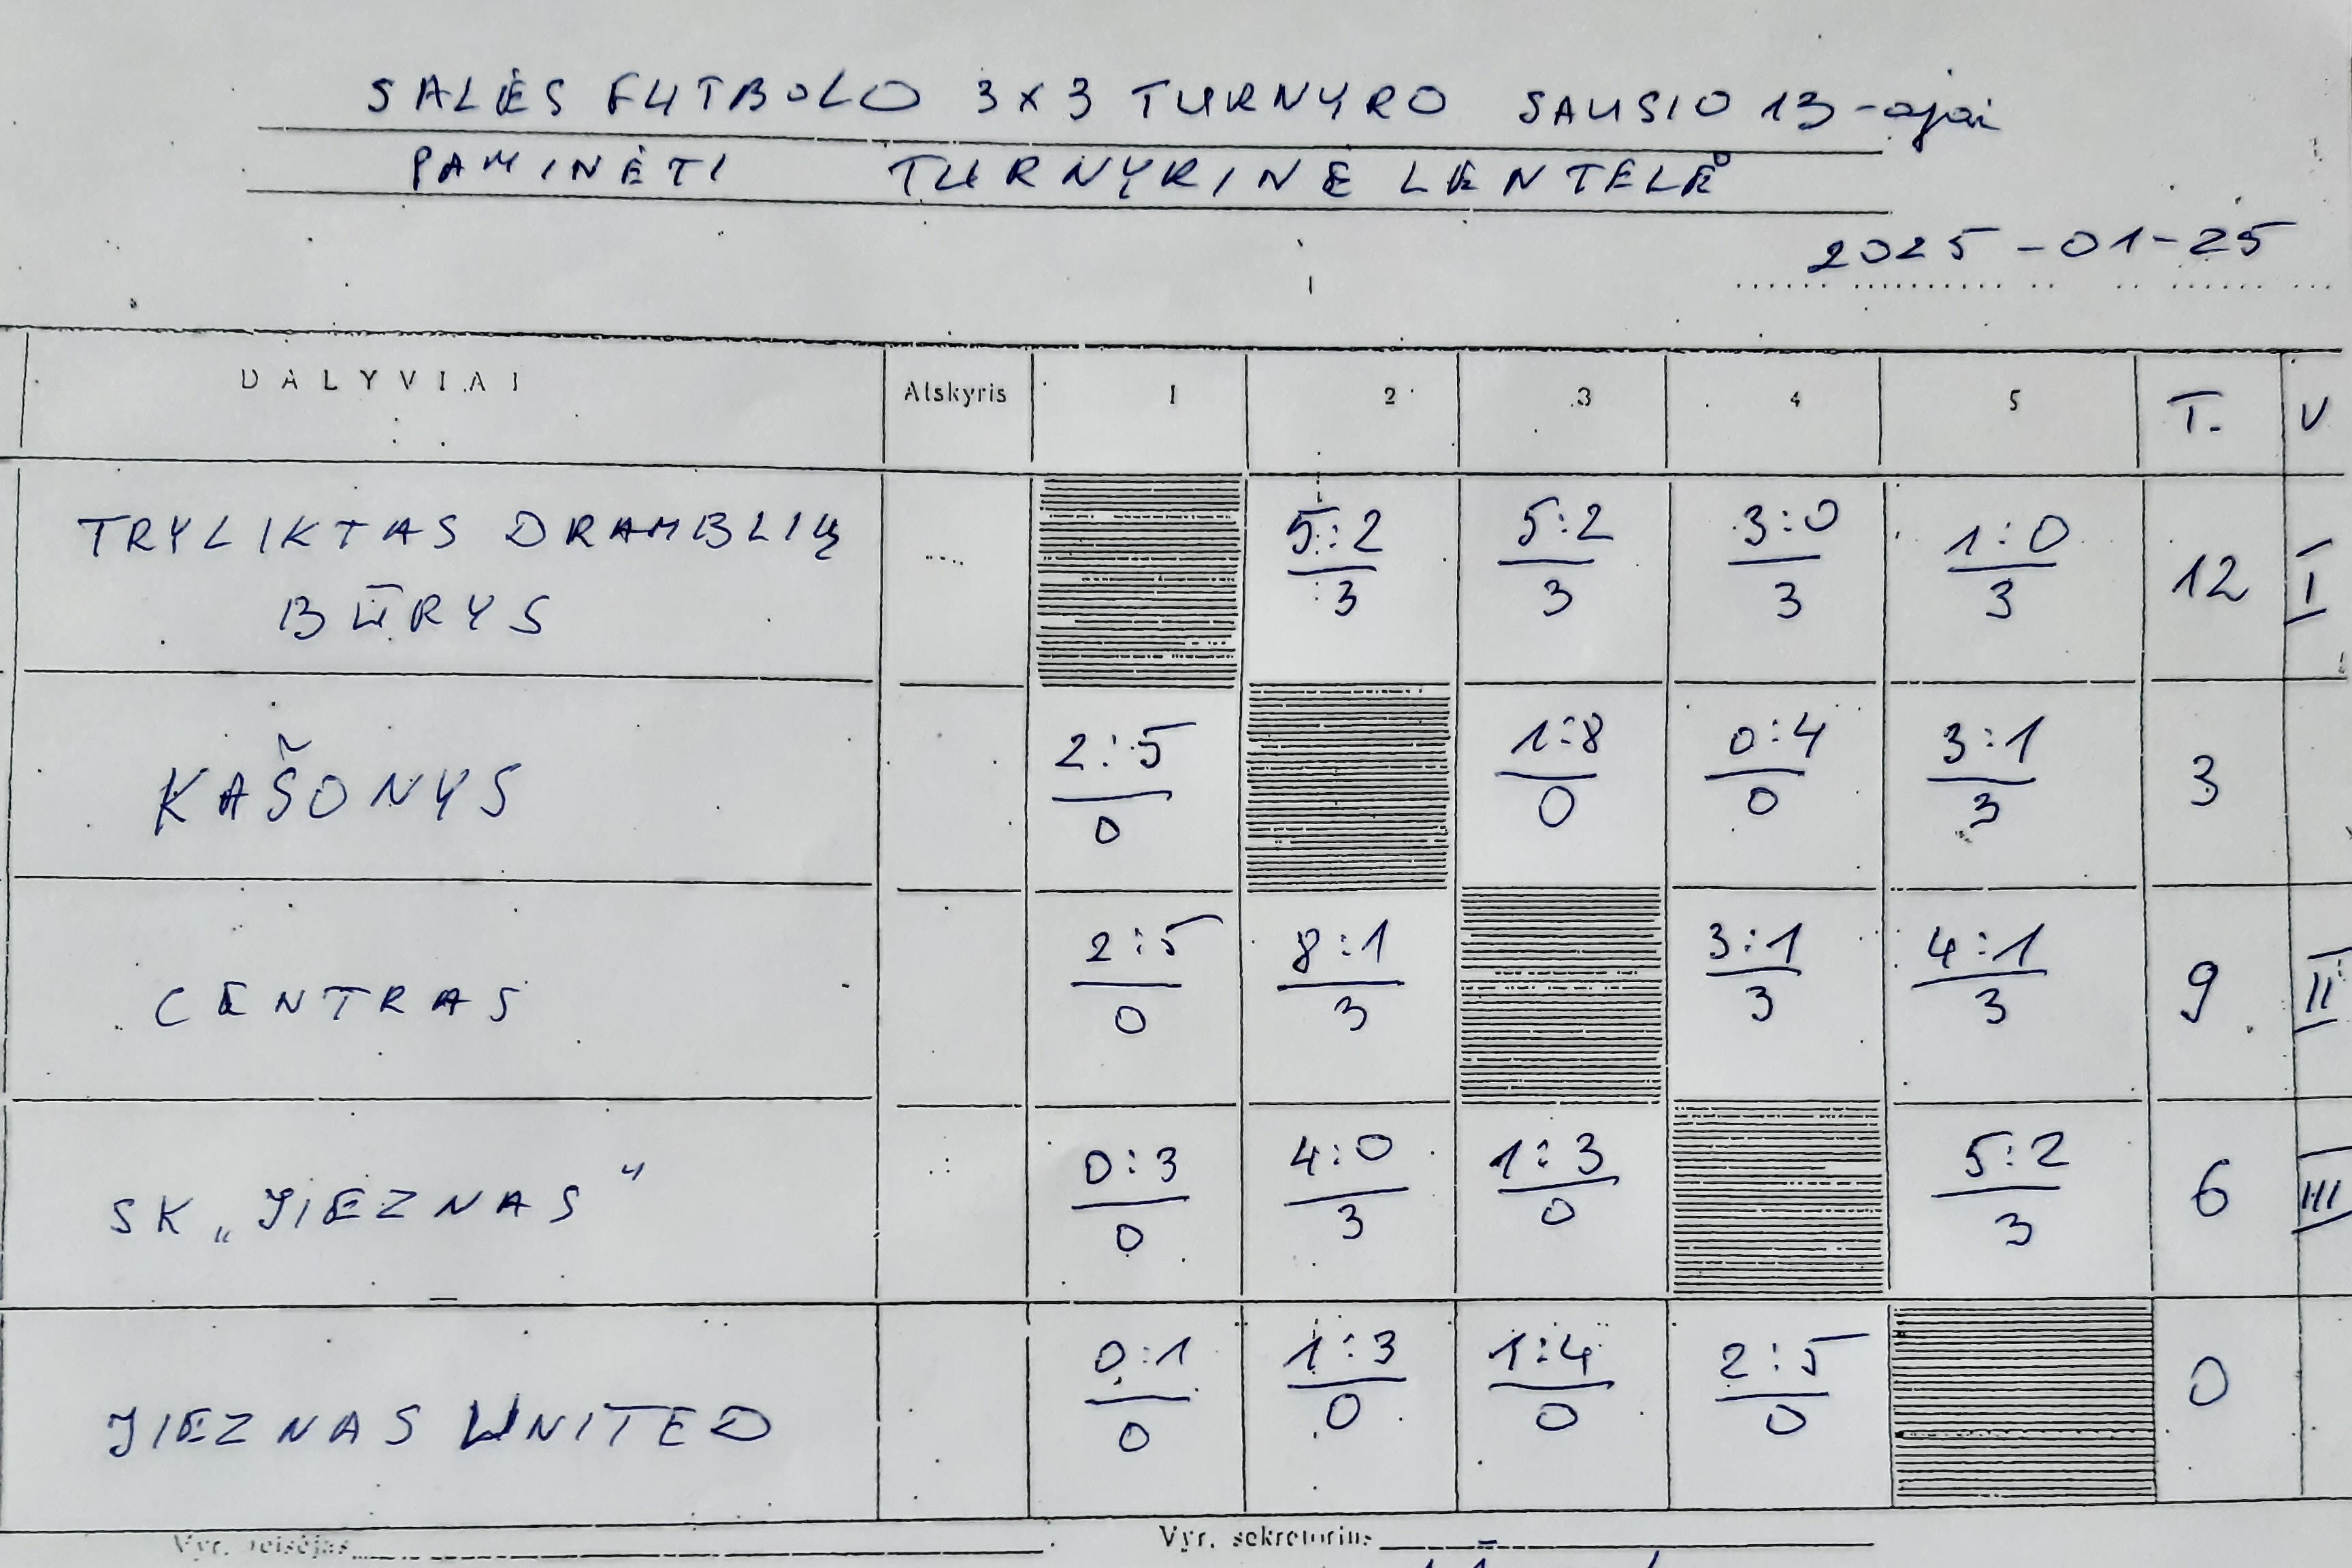 SALĖS FUTBOLO 3X3 TURNYRO SAUSIO 13-ajai
PAMINĖTI TURNYRINĖ LENTELĖ
2025-01-25
DALYVIAI Atskyris 1 2 3 4 5 T. V
TRYLIKTAS DRAMBLIŲ
BŪRYS
5:2 5:2 3:0 1:0
3 3 3 3
12 I
KAŠONYS
2:5 1:8 0:4 3:1
0 0 0 3
3
CENTRAS
2:5 8:1 3:1 4:1
0 3 3 3
9 II
SK „JIEZNAS“
0:3 4:0 1:3 5:2
0 3 0 3
6 III
JIEZNAS UNITED
0:1 1:3 1:4 2:5
0 0 0 0
0
Vyr. teisėjas Vyr. sekretorius